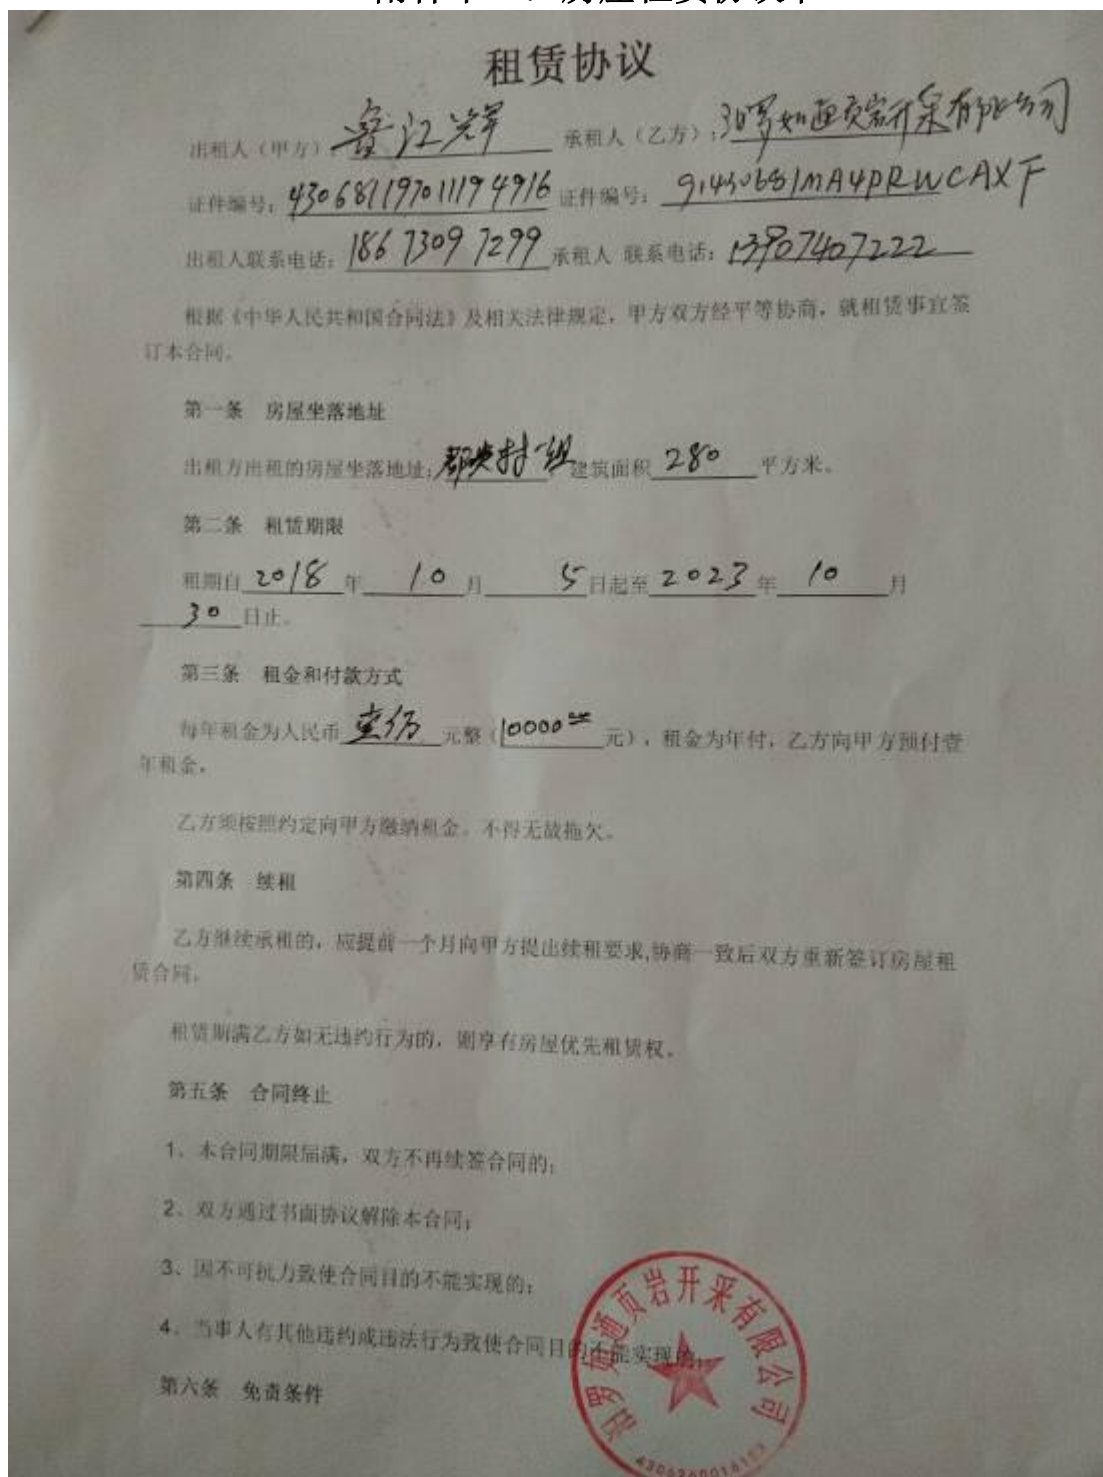 租赁协议
出租人（甲方）：鲁江辉 承租人（乙方）：汨罗如通页岩开采有限公司
证件编号：430681197011194916 证件编号：91430681MA4PRWCAXF
出租人联系电话：18673097299 承租人 联系电话：13907407222
根据《中华人民共和国合同法》及相关法律规定，甲方双方经平等协商，就租赁事宜签
订本合同。
第一条 房屋坐落地址
出租方出租的房屋坐落地址：村一组 建筑面积 280 平方米。
第二条 租赁期限
租期自 2018 年 10 月 5 日起至 2023 年 10 月
30 日止。
第三条 租金和付款方式
每年租金为人民币 壹万 元整（10000 元），租金为年付，乙方向甲方预付壹
年租金。
乙方须按照约定向甲方缴纳租金。不得无故拖欠。
第四条 续租
乙方继续承租的，应提前一个月向甲方提出续租要求,协商一致后双方重新签订房屋租
赁合同。
租赁期满乙方如无违约行为的，则享有房屋优先租赁权。
第五条 合同终止
1、本合同期限届满，双方不再续签合同的；
2、双方通过书面协议解除本合同；
3、因不可抗力致使合同目的不能实现的；
4、当事人有其他违约或违法行为致使合同目的不能实现的。
第六条 免责条件
汨罗如通页岩开采有限公司